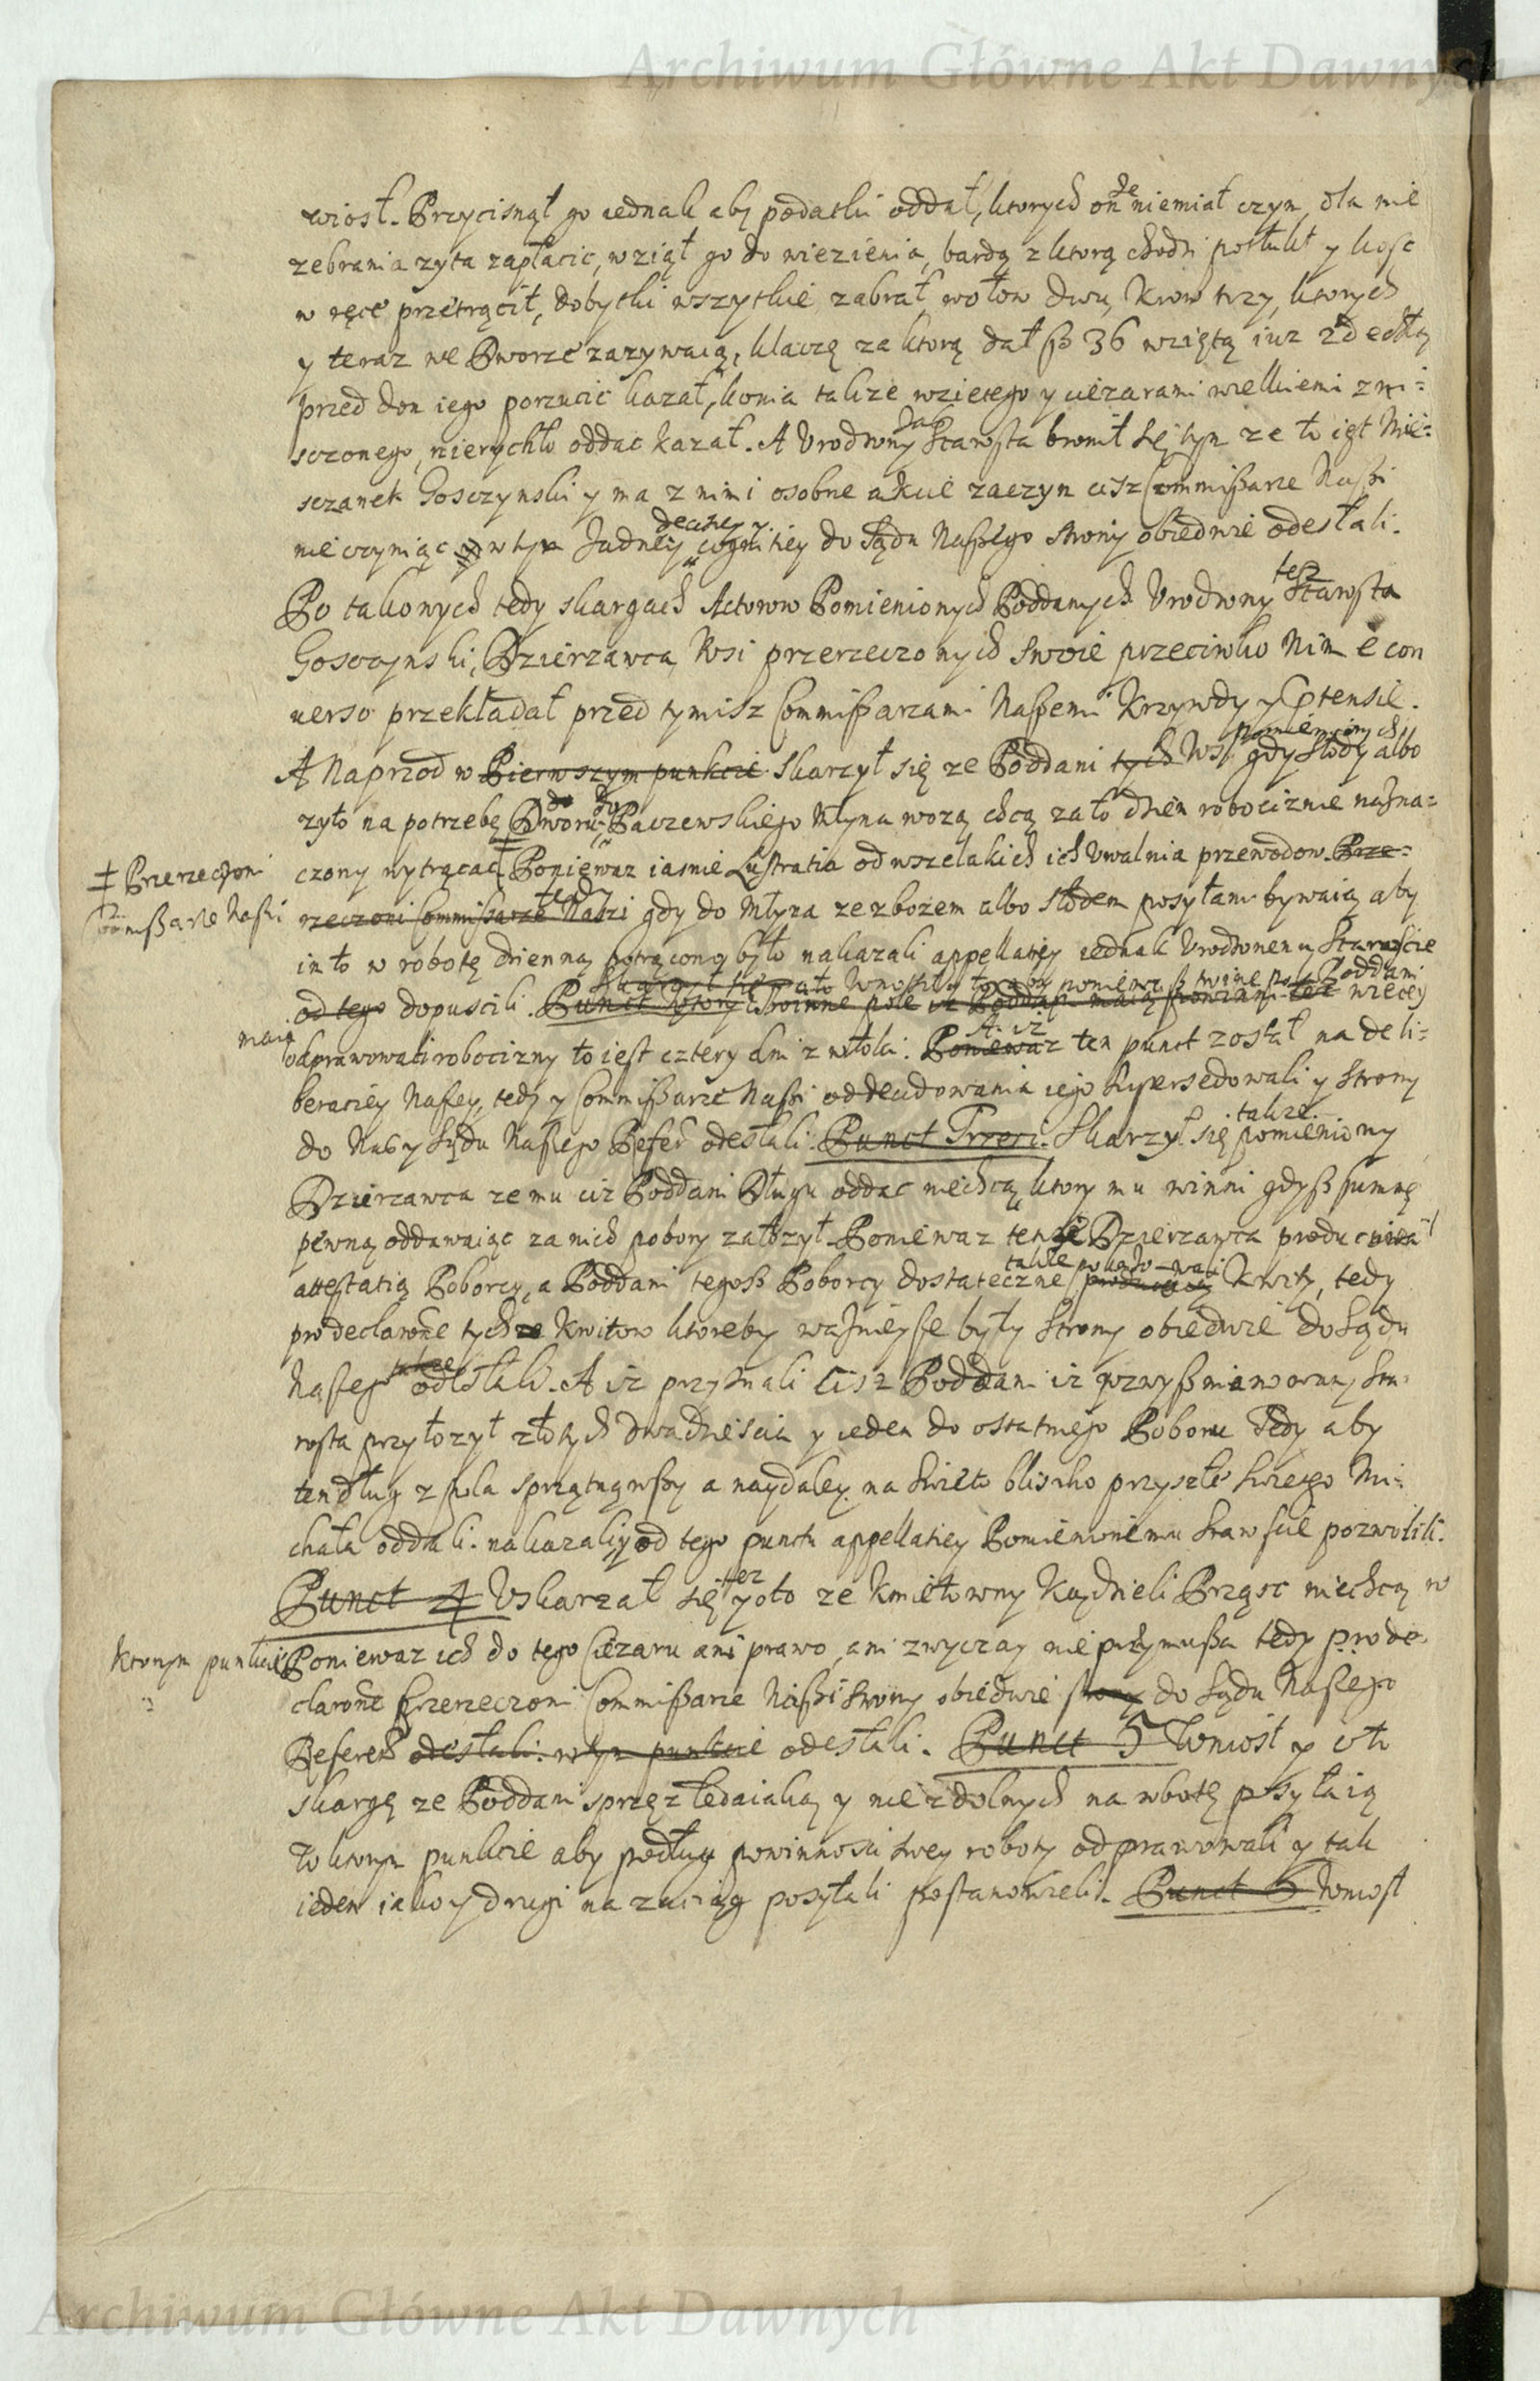 Archiwum Główne Akt Dawnych
wiosł. Przycisnął go iednak aby podatki oddał, ktorych on ze niemiał czym, dla nie
zebrania zyta zapłacic, wziął go do wiezienia, bardą z ktorą chodzi potłukł y kosc
w ręce przetrącił, dobytki wszytkie zabrał, wołow dwu, krow trzy, ktorych
y teraz we Dworze zazywaią, klaczę za ktorą dał fl 36 wziętą iuz zdechłą
przed dom iego porzucic kazał, konia takze wzietego y ciezarami wielkiemi zni-
sczonego, nierychło oddac kazał. A Urodzony Starosta bronił się tym ze to iest Mie-
sczanek Gosczynski y ma z nimi osobne akcie zaczym cisz Commissarze Nassi
nie czyniąc w tym zadney decisey y cognitiey do Sądu Naszego strony obiedwie odesłali.
Po takowych tedy skargach Actorow Pomienionych Poddanych Urodzony tesz Starosta
Gosczynski, Dzierzawca Wsi przerzeczonych swoie przeciwko Nim e con
uerso przekładał przed tymisz Commissarzami Naszemi Krzywdy y Ptensie.
A Naprzod w Pierwszym punkcie skarzył się ze Poddani tych Wsi pomienionych gdy słody albo
zyto na potrzebę Dworu do Paczewskiego Młyna wozą chcą za to dzien robociznie nazna-
czony wytrącac Poniewaz iasnie Lustratia od wszelakich ich Uwalnia przewodow Prze-
‡ Przerzeczoni
Commissarze Nassi
rzeczoni Commissarze Nassi tedy gdy do Młyna ze zbozem albo słodem posyłani bywaią aby
im to w robotę dzienną potrącono było nakazali appellatiey iednak Urodzonemu Staroscie
od tego dopuscili. Punct Wtory Poddani
maią odprawowali robocizny to iest cztery dni z włoki. Poniewaz A iz ten punct został na deli-
beraciey Naszey, tedy y Commissarze Nassi od decidowania iego supersedowali y strony
do Sądu Naszego Refer odesłali. Punct Trzeci. Skarzył się takze pomieniony
Dzierzawca ze mu ciz Poddani Długu oddac niechcą ktory mu winni gdysz summę
pewną oddawaiąc za nich pobory załozył. Poniewaz tenze Dzierzawca
attestatią Poborcy, a Poddani tegosz Poborcy dostateczne takze Kwity, tedy
pro declarone tychze Kwitow ktoreby waznieysze były strony obiedwie do Sądu
Naszego odesłali. A iz przyznali cisz Poddani iz wzwysz mianowany Sta-
rosta przyłozył złotych dwadziescia y ieden do ostatniego Poboru Tedy aby
ten dług z pola sprzątnąwszy a naydaley na swieto blisko przyszłe swietego Mi-
chała oddali. nakazali y od tego punctu appellatiey Pomienionemu Starosscie pozwolili.
Punct 4 Uskarzał się tez y oto ze kmietowny Kądzieli Prząsc niechcą w
ktorym punkcie Poniewaz ich do tego Ciezaru ani prawo, ani zwyczay nie przymusza tedy pro de-
clarone Przerzeczoni Commissarze Nassi strony obiedwie strony do Sądu Naszego
Referen odesłali. w tym punkcie odesłali. Punct 5 Wniosł y oto
skargę ze Poddani sprzęz ledaiaką y niezdolnych na robotę posyłaią
W ktorym punkcie aby podług powinnosci swey roboty odprawowali y tak
ieden iako y drugi na zaciąg posyłali postanowieli. Punct 6 Wniosł
Archiwum Główne Akt Dawnych